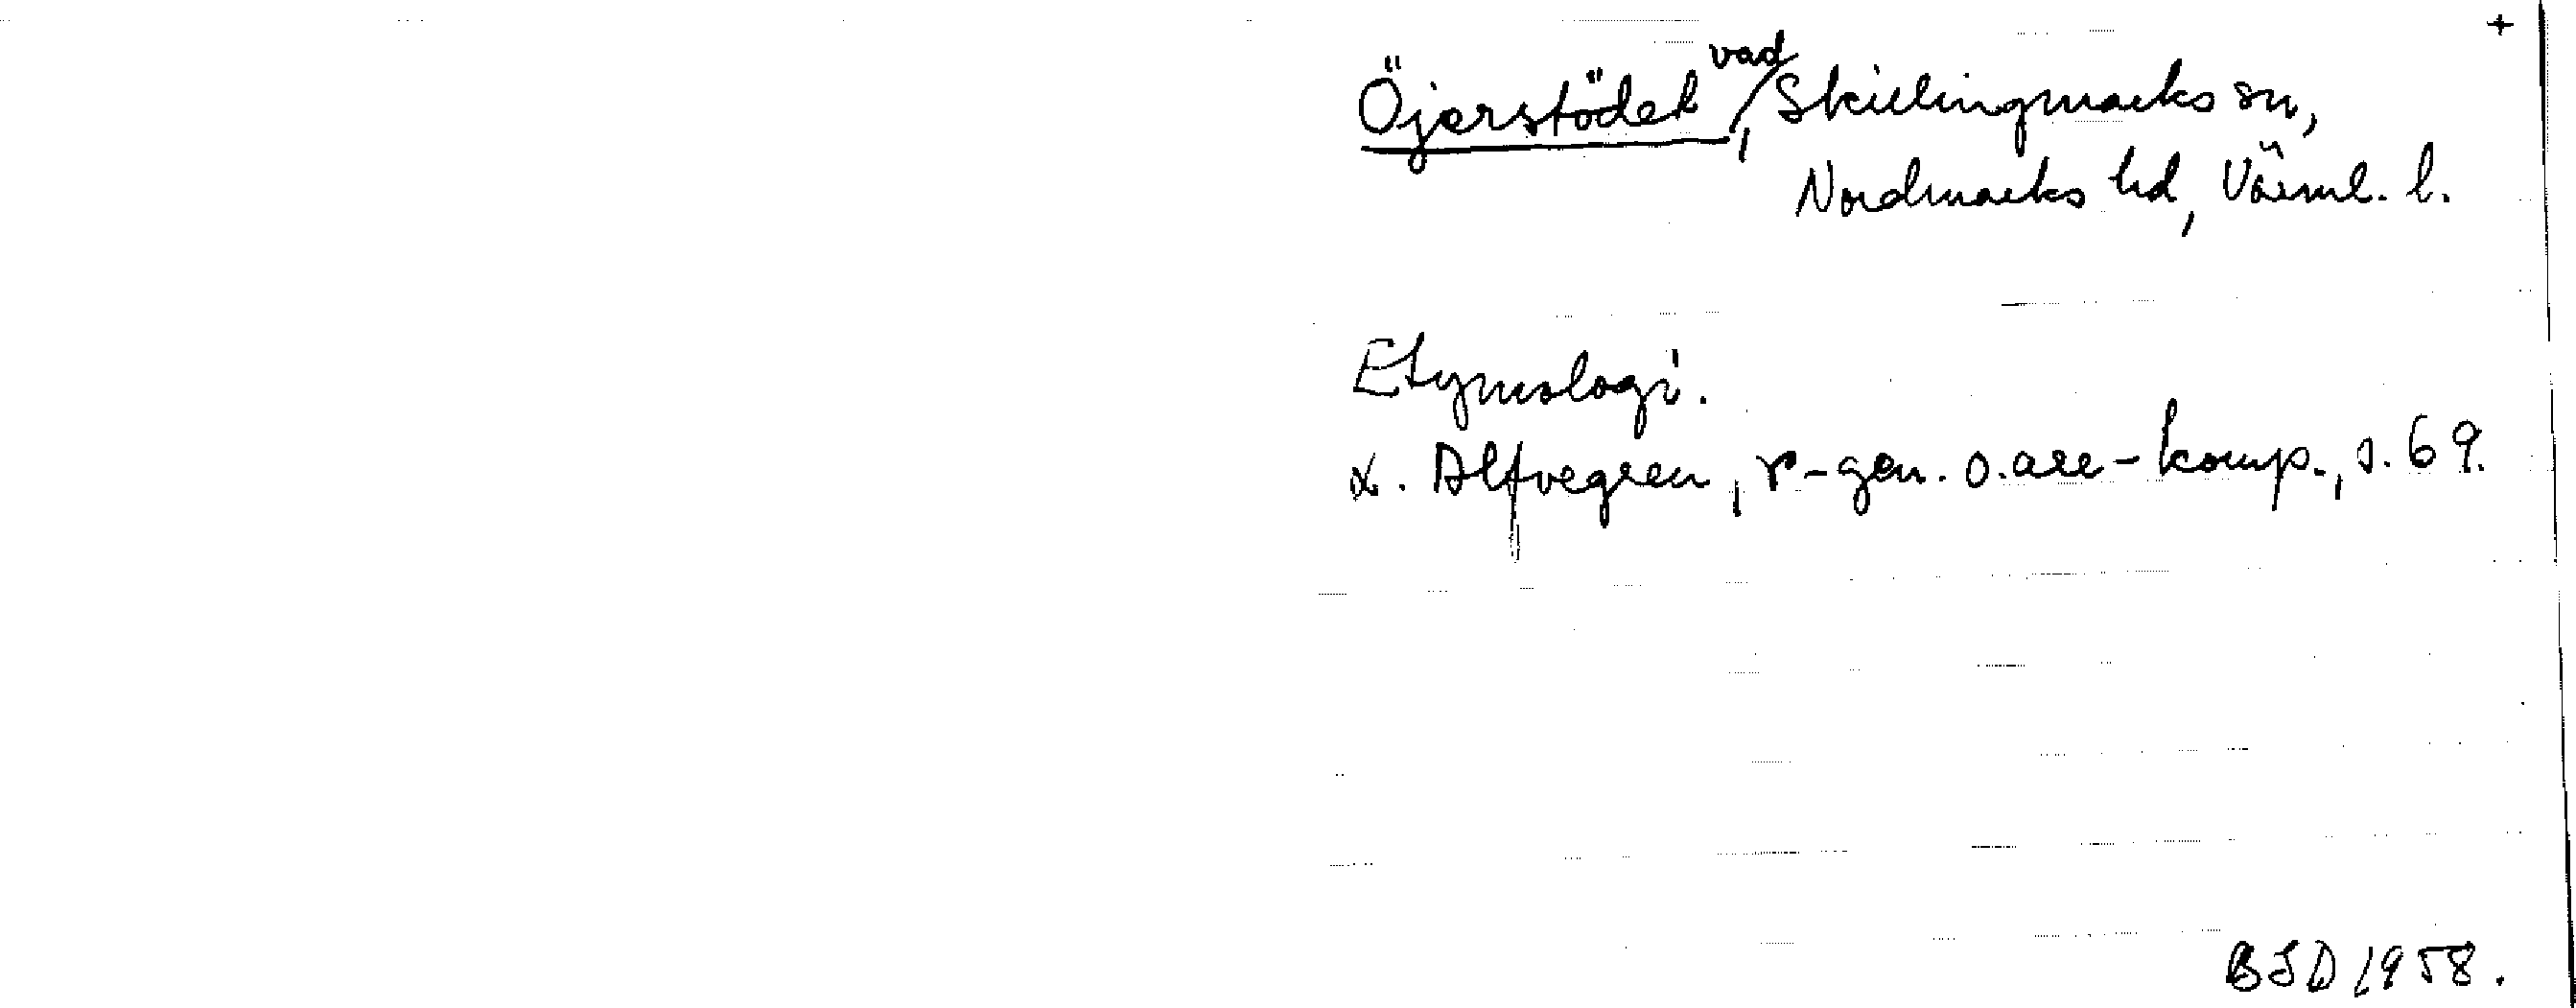 +
Öjerstödet vad, Skillingmarks sn,
Nordmarks hd, Värml. l.
Etymologi.
L. Alfvegren, r-gen. o. are-komp., s. 69.
BJD 1958.